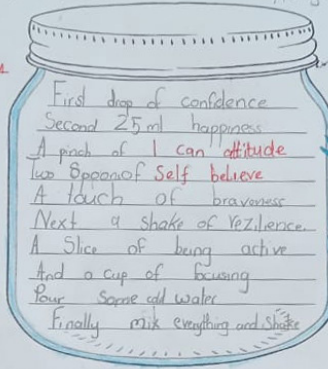 First drop of confidence
Second 25ml happiness
A pinch of I can attitude
Two Spoon of Self believe
A touch of braveness
Next a shake of rezilence.
A Slice of being active
And a cup of focusing
Pour Some cold water
Finally mix everything and shake